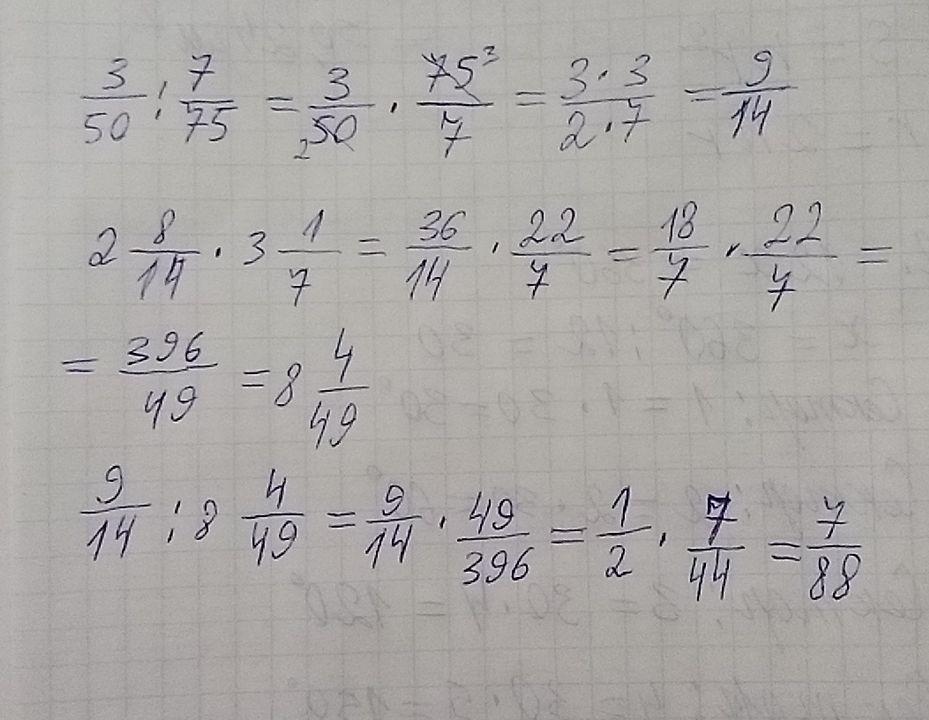 3/50 : 7/75 = 3/50 2 · 75/7 3 = 3·3/2·7 = 9/14
2 8/14 · 3 1/7 = 36/14 · 22/7 = 18/7 · 22/7 =
= 396/49 = 8 4/49
9/14 : 8 4/49 = 9/14 · 49/396 = 1/2 · 7/44 = 7/88